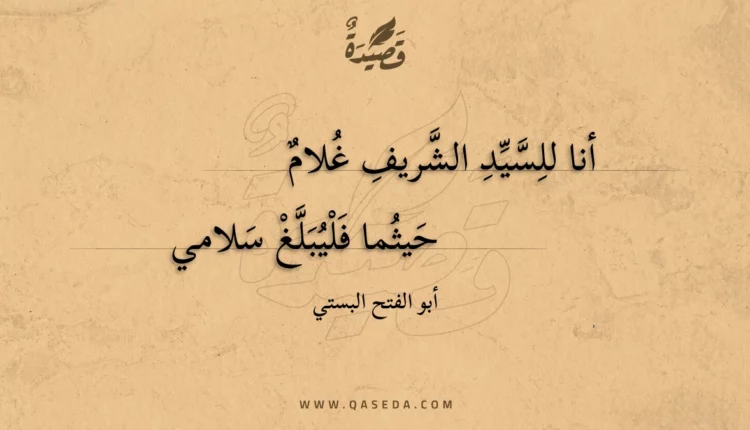 قَصِيدَةٌ
أنا للِسَّيِّدِ الشَّريفِ غُلامٌ
حَيثُما فَلْيُبَلَّغْ سَلامي
أبو الفتح البستي
WWW.QASEDA.COM